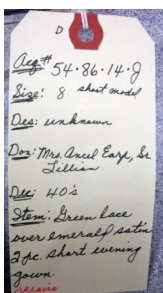 D
Acq# 54·86·14·J
Size: 8 short model
Des: unknown
Don: Mrs. Ancel Earp, Sr.
Lillian
Dec: 40's
Item: Green lace
over emerald satin
2 pc. short evening
gown.
repairs